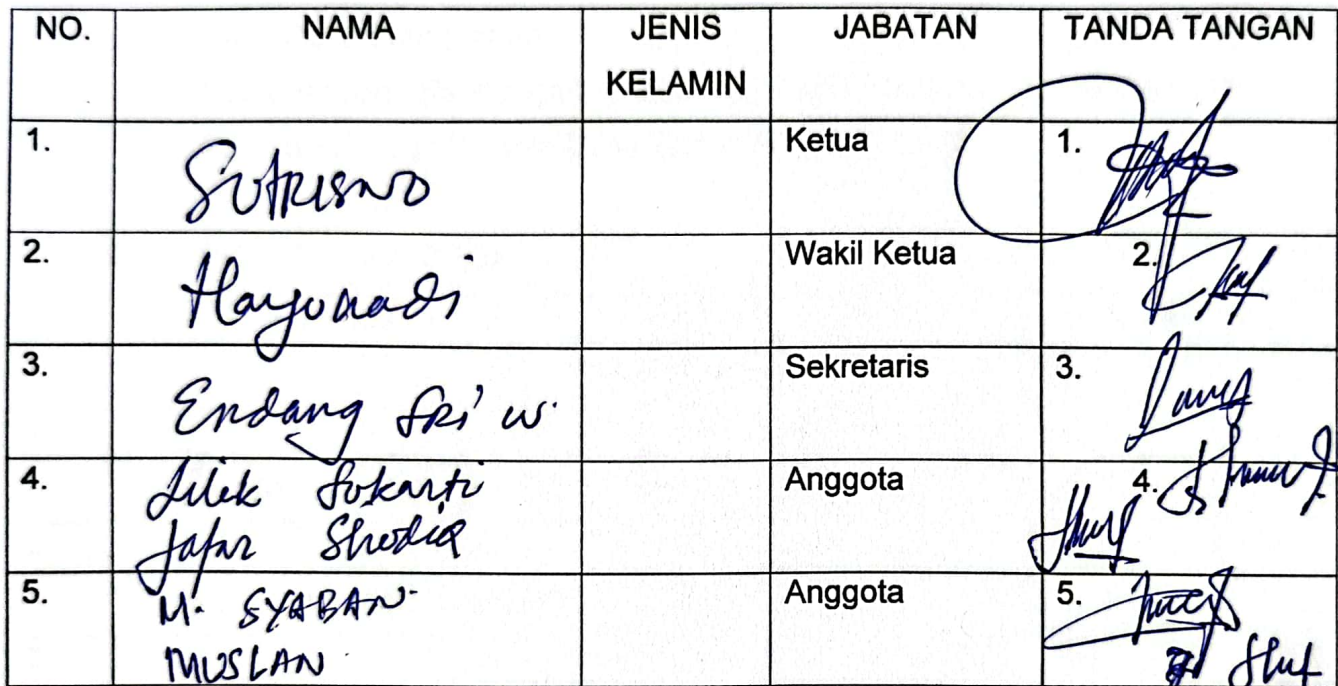 NO. NAMA JENIS KELAMIN JABATAN TANDA TANGAN
1. SUTRISNO Ketua 1.
2. Haryonadi Wakil Ketua 2.
3. Endang Sri W. Sekretaris 3.
4. Lilek Sukarti Anggota 4.
Jafar Shodiq
5. M. SYABAN. Anggota 5.
MUSLAN